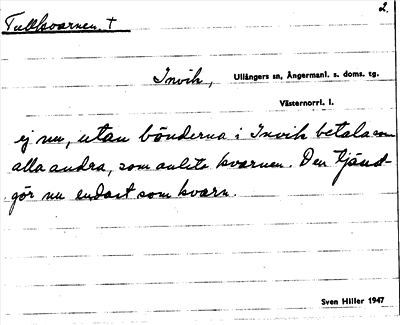 Tullkvarnen. +
2.
Invik, Ullångers sn, Ångermanl. s. doms. tg.
Västernorrl. l.
ej nu, utan bönderna i Invik betala som
alla andra, som anlita kvarnen. Den tjänst-
gör nu endast som kvarn.
Sven Hiller 1947